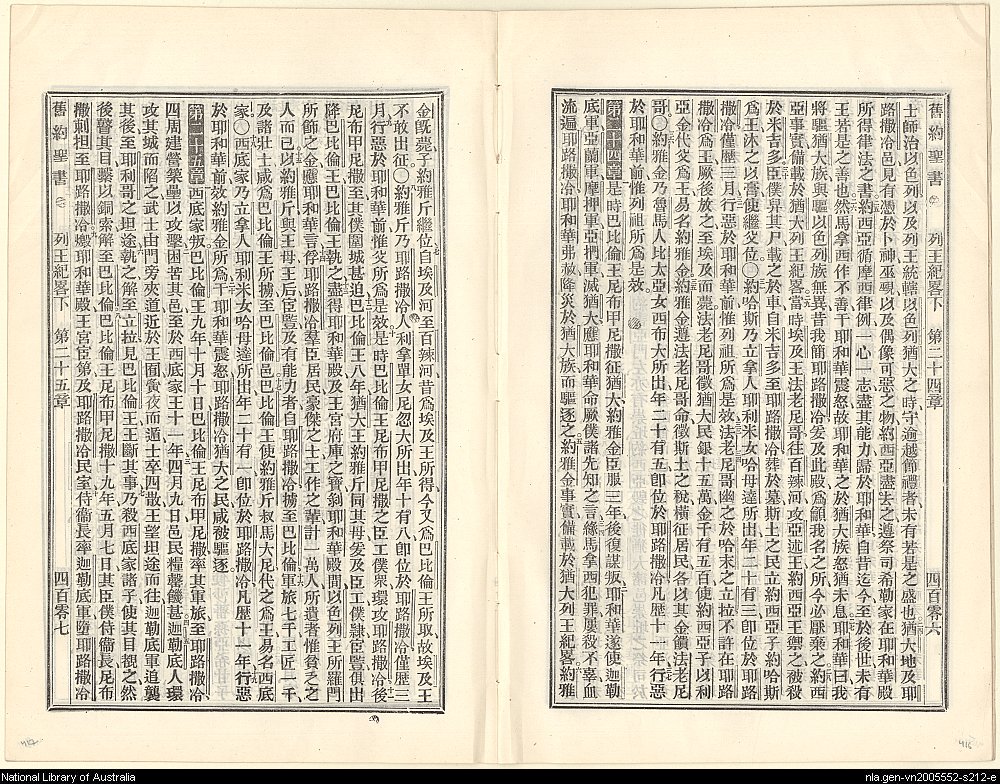 舊約聖書 列王紀畧下 第二十四章 四百零六
士師治以色列以及列王統轄以色列猶大之時守逾越節禮者未有若是之盛也猶大地及耶
路撒冷邑見有憑於卜神巫覡以及偶像可惡之物約西亞盡去之遵祭司希勒家在耶和華殿
所得律法之書約西亞循摩西律例一心一志盡其能力歸於耶和華自昔迄今至於後世未有
王若是之善也然馬拿西作不善干耶和華震怒故耶和華之於猶大族怒猶未息耶和華曰我
將驅猶大族與驅以色列族無異昔我簡耶路撒冷爰及此殿爲籲我名之所今必厭棄之約西
亞事實備載於猶大列王紀畧當時埃及王法老尼哥往百辣河攻亞述王約西亞王禦之被殺
於米吉多臣僕舁其尸載之於車自米吉多至耶路撒冷葬於墓斯土之民立約西亞子約哈斯
爲王沐之以膏使繼父位〇約哈斯乃立拿人耶利米女哈母達所出年二十有三即位於耶路
撒冷僅歷三月行惡於耶和華前惟列祖所爲是效法老尼哥幽之於哈末之立拉不許在耶路
撒冷爲王厥後放之至埃及而薨法老尼哥徵猶大民銀十五萬金千有五百使約西亞子以利
亞金代父爲王易名約雅金約雅金遵法老尼哥命徵斯土之稅橫征居民各以其金饋法老尼
哥〇約雅金乃魯馬人比太亞女西布大所出年二十有五即位於耶路撒冷凡歷十一年行惡
於耶和華前惟列祖所爲是效
第二十四章是時巴比倫王尼布甲尼撒征猶大約雅金臣服三年後復謀叛耶和華遂使迦勒
底軍亞蘭軍摩押軍亞捫軍滅猶大應耶和華命厥僕諸先知之言緣馬拿西犯罪屢殺不辜血
流遍耶路撒冷耶和華弗赦降災於猶大族而驅逐之約雅金事實備載於猶大列王紀畧約雅
金既薨子約雅斤繼位自埃及河至百辣河昔爲埃及王所得今又爲巴比倫王所取故埃及王
不敢出征〇約雅斤乃耶路撒冷人利拿單女尼忽大所出年十有八即位於耶路撒冷僅歷三
月行惡於耶和華前惟父所爲是效是時巴比倫王尼布甲尼撒之臣工僕衆環攻耶路撒冷後
尼布甲尼撒至其僕圍城甚迫巴比倫王八年猶大王約雅斤同其母爰及臣工僕隸臣豎俱出
降巴比倫王巴比倫王執之盡得耶和華殿及王宮府庫之寶剖耶和華殿間以色列王所羅門
所飾之金應耶和華言俘耶路撒冷羣臣居民豪傑之士工作之輩計一萬人所遺者惟貧乏之
人而已以約雅斤與王母王后臣豎及有能力者自耶路撒冷擄至巴比倫軍旅七千工匠一千
及諸壯士咸爲巴比倫王所擄至巴比倫邑巴比倫王使約雅斤叔馬大尼代之爲王易名西底
家〇西底家乃立拿人耶利米女哈母達所出年二十有一即位於耶路撒冷凡歷十一年行惡
於耶和華前效約雅金所爲干耶和華震怒耶路撒冷猶大之民咸被驅逐
第二十五章西底家叛巴比倫王九年十月十日巴比倫王尼布甲尼撒率其軍旅至耶路撒冷
四周建營築壘以攻擊困苦其邑至於西底家王十一年四月九日邑民糧罄饑甚迦勒底人環
攻其城而陷之武士由門旁夾道近於王囿夤夜而遁士卒四散王望坦途而往迦勒底軍追襲
其後至耶利哥之坦途執之解至立拉見巴比倫王王斷其事乃殺西底家諸子使其目擊之然
後瞽其目繫以銅索解至巴比倫巴比倫王尼布甲尼撒十九年五月七日其臣僕侍衞長尼布
撒剌担至耶路撒冷燬耶和華殿王宮宦臣第及耶路撒冷民室侍衞長率迦勒底軍墮耶路撒冷
舊約聖書 列王紀畧下 第二十五章 四百零七
417
416
National Library of Australia
nla.gen-vn2005552-s212-e